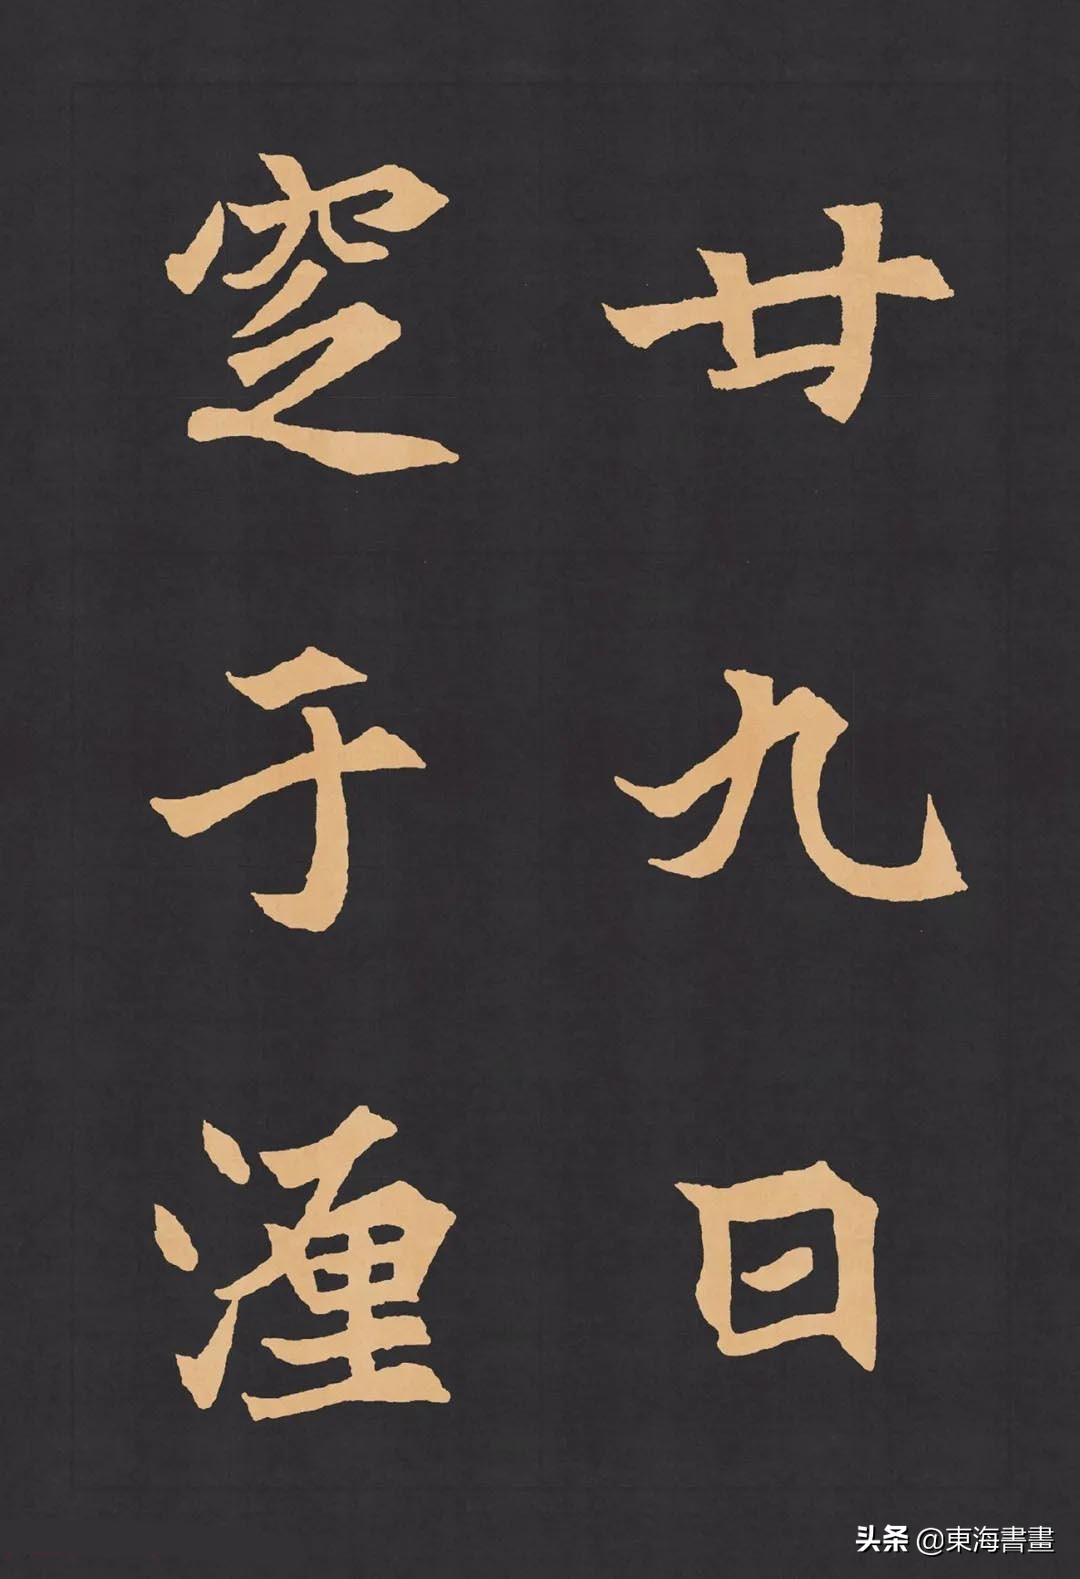 廿九日
窆于瀍
头条 @東海書畫